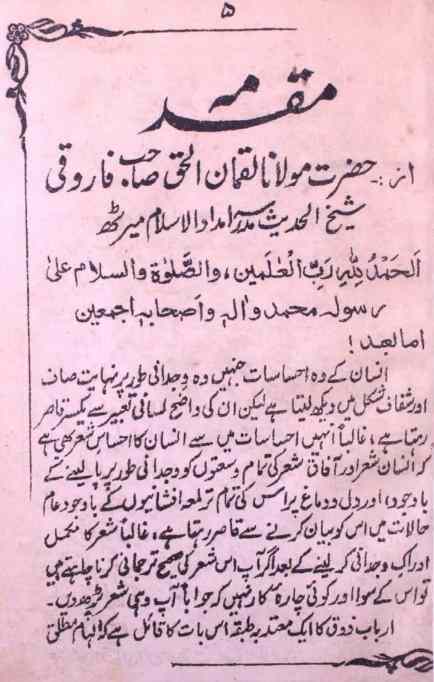 ۵
مقدمہ
از :۔ حضرت مولانا لقمان الحق صاحب فاروقی
شیخ الحدیث مدرسہ امداد الاسلام میرٹھ
الحمدُ للہِ ربِّ العٰلمین، والصَّلوٰۃ والسلام علیٰ
رسولہ محمد وآلہٖ واصحابہٖ اجمعین
اما بعد!
انسان کے وہ احساسات جنہیں وہ وجدانی طور پر نہایت صاف
اور شفاف شکل میں دیکھ لیتا ہے لیکن ان کی واضح لسانی تعبیر سے یکسر قاصر
رہتا ہے، غالباً انہیں احساسات میں سے انسان کا احساس شعر بھی ہے
کہ انسان شعر اور آفاق شعر کی تمام وسعتوں کو وجدانی طور پر پا لینے کے
باوجود، اور دل و دماغ پر اس کی تمام تر لمعہ افشانیوں کے باوجود عام
حالات میں اس کو بیان کرنے سے قاصر رہتا ہے، غالباً شعر کا مکمل
ادراک وجدانی کر لینے کے بعد اگر آپ اس شعر کی صحیح ترجمانی کرنا چاہتے ہیں
تو اس کے سوا اور کوئی چارۂ کار نہیں کہ جواباً آپ وہی شعر پڑھ دیں۔
ارباب ذوق کا ایک معتد بہ طبقہ اس بات کا قائل ہے کہ ابہام مطلق